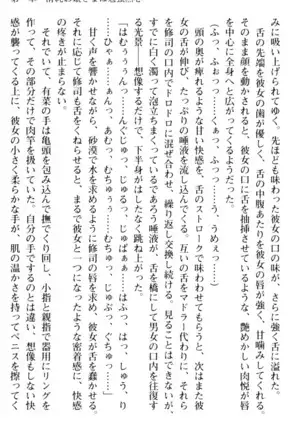 みに吸い上げられてゆく。先ほども味わった彼女の口の味が、さらに強く舌に溢れた。
舌の先端を彼女の歯が優しく、舌の中腹あたりを彼女の唇が強く、甘噛みしてくれる。
そのまま顔を動かされると、彼女の口に舌を抽挿させているような、艶めかしい肉悦が唇
を中心に全身へと広がってくるようだった。
（ふっ、ふぉっ……っ、ふっ……っ、うめぇっ……）
頭の奥が痺れるような甘い快感を、舌のストロークで味わわせてもらうと、次はまた彼
女の舌が伸び、たっぷりの唾液を流し込んでくる。互いの舌をマドラー代わりに、それら
を修司の口内でドロドロに混ぜ合わせ、繰り返し交換し続ける。見ることはできないが、
すでに白く濁って泡立ちまくっているであろう唾液が、舌を橋にして男女の口内を往復す
る光景――想像するだけで、下半身がはしたなく跳ね上がった。
「はむぅぅんっ……んぐじゅっ、じゅるぅ……はふっ、はっ、しゅう、り
ひゃっ……ぁぁんっ、あむっ、むちゅぅ……むちゅっ、じゅぷっ、ぐちゅっ……」
甘く声を響かせながら、砂漠で水を求めるように修司の唇を求め、彼女が舌を蠢かせる。
それに合わせて修司も舌をくねらせると、まるで彼女と一つになったような密着感に、快感
の疼きが止まらない。
それでいて、有菜の手は亀頭を包み込んで撫でくり回し、小指と親指で器用にリングを
作って、その部分だけで肉竿を扱いていた。自分の手でするのとは違い、想像もしない快
感が襲ってくる上に、彼女の小さく柔らかな手が、肌の温かさを持ってペニスを擦ってく